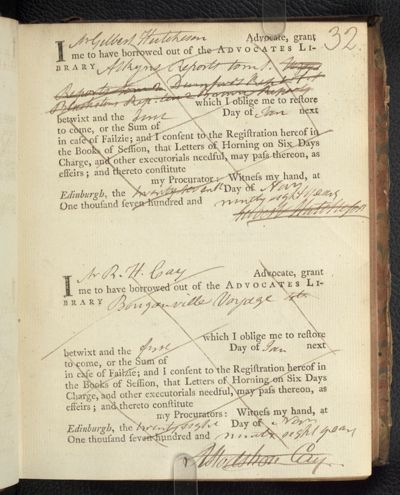 32.
I Mr Gilbert Hutcheson Advocate, grant
me to have borrowed out of the ADVOCATES LI-
BRARY Atkyns Reports tom 1.
Reports tom Durnfords Rep
Blackstons Rep Brown Reports
which I oblige me to restore
betwixt and the first Day of Jan next
to come, or the Sum of
in case of Failzie; and I consent to the Registration hereof in
the Books of Session, that Letters of Horning on Six Days
Charge, and other executorials needful, may pass thereon, as
effeirs; and thereto constitute
my Procurator: Witness my hand, at
Edinburgh, the twenty Day of Nov
One thousand seven hundred and ninety eight years
I Mr R. H. Cay Advocate, grant
me to have borrowed out of the ADVOCATES LI-
BRARY Bouganville Voyage
which I oblige me to restore
betwixt and the first Day of Jan next
to come, or the Sum of
in case of Failzie; and I consent to the Registration hereof in
the Books of Session, that Letters of Horning on Six Days
Charge, and other executorials needful, may pass thereon, as
effeirs; and thereto constitute
my Procurators: Witness my hand, at
Edinburgh, the twenty eight Day of Nov
One thousand seven hundred and ninety eight years
R Hodshon Cay